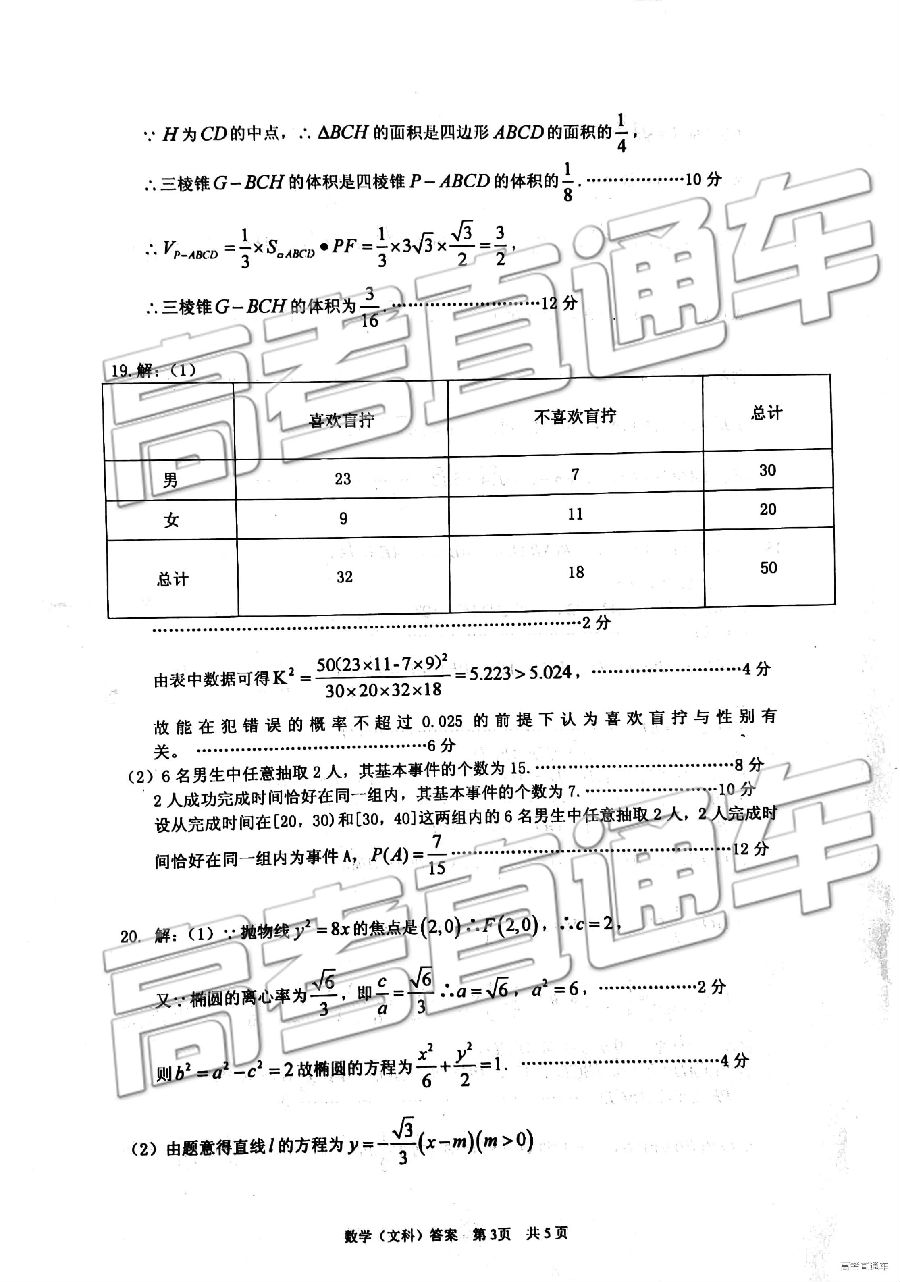 ∵ H为CD的中点，∴ ΔBCH 的面积是四边形 ABCD的面积的1/4，
∴三棱锥G－BCH 的体积是四棱锥 P－ABCD 的体积的1/8．………………10 分
∴ V_{P-ABCD} = 1/3×S_{▱ABCD}•PF = 1/3×3√3×√3/2 = 3/2，
∴三棱锥G－BCH 的体积为3/16．………………………12 分
19. 解：（1）
喜欢盲拧 不喜欢盲拧 总计
男 23 7 30
女 9 11 20
总计 32 18 50
………………………………………………………………………2 分
由表中数据可得K² = 50(23×11-7×9)²/(30×20×32×18) = 5.223 > 5.024，………………………4 分
故能在犯错误的概率不超过 0.025 的前提下认为喜欢盲拧与性别有
关。 ……………………………………6 分
（2）6 名男生中任意抽取 2 人，其基本事件的个数为 15.………………………………8 分
2 人成功完成时间恰好在同一组内，其基本事件的个数为 7.……………………10 分
设从完成时间在[20，30)和[30，40]这两组内的 6 名男生中任意抽取 2 人，2 人完成时
间恰好在同一组内为事件 A，P(A)=7/15………………………………………………12 分
20. 解：（1）∵ 抛物线 y²=8x 的焦点是(2,0)∴F(2,0)，∴c=2，
又∵椭圆的离心率为√6/3，即c/a=√6/3∴a=√6，a²=6，………………2 分
则b²=a²−c²=2故椭圆的方程为x²/6+y²/2=1．………………………………4 分
（2）由题意得直线 l 的方程为 y=−√3/3(x−m)(m>0)
数学（文科）答案 第 3页 共 5 页
高考直通车
高考直通车
高考直通车